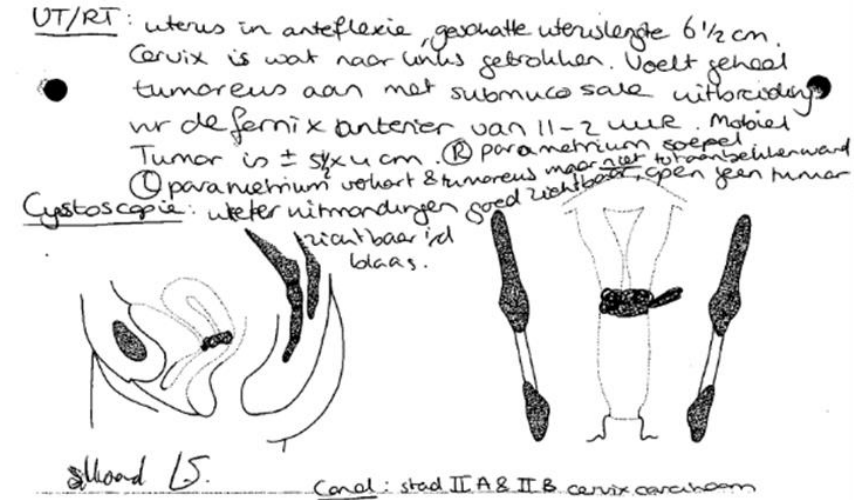 VT/RT: uterus in anteflexie, geschatte uteruslengte 6½ cm.
Cervix is wat naar links getrokken. Voelt geheel
tumoreus aan met submucosale uitbreiding
nr de fornix anterior van 11-2 uur. Mobiel
Tumor is ± 5½ x 4 cm. Ⓡ parametrium soepel
Ⓛ parametrium verkort & tumoreus maar niet tot aan bekkenwand
Cystoscopie: ureter uitmondingen goed zichtbaar, geen tumor
zichtbaar i/d
blaas.
Concl: stad II A & II B cervixcarcinoom